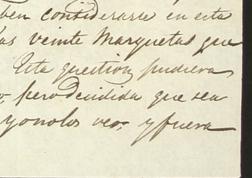 ben considerarse en esta
las veinte Marquetas que
Esta question, pudiera
pero decidida que sea
yo no los veo, y fuera